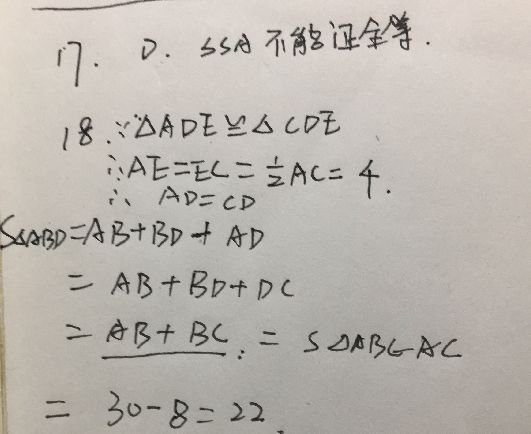 17. D. SSA 不能证全等.
18. ∵△ADE≌△CDE
∴AE=EC=½AC=4.
∴ AD=CD
S△ABD=AB+BD+AD
= AB+BD+DC
= AB+BC. = S△ABC-AC
= 30-8=22.